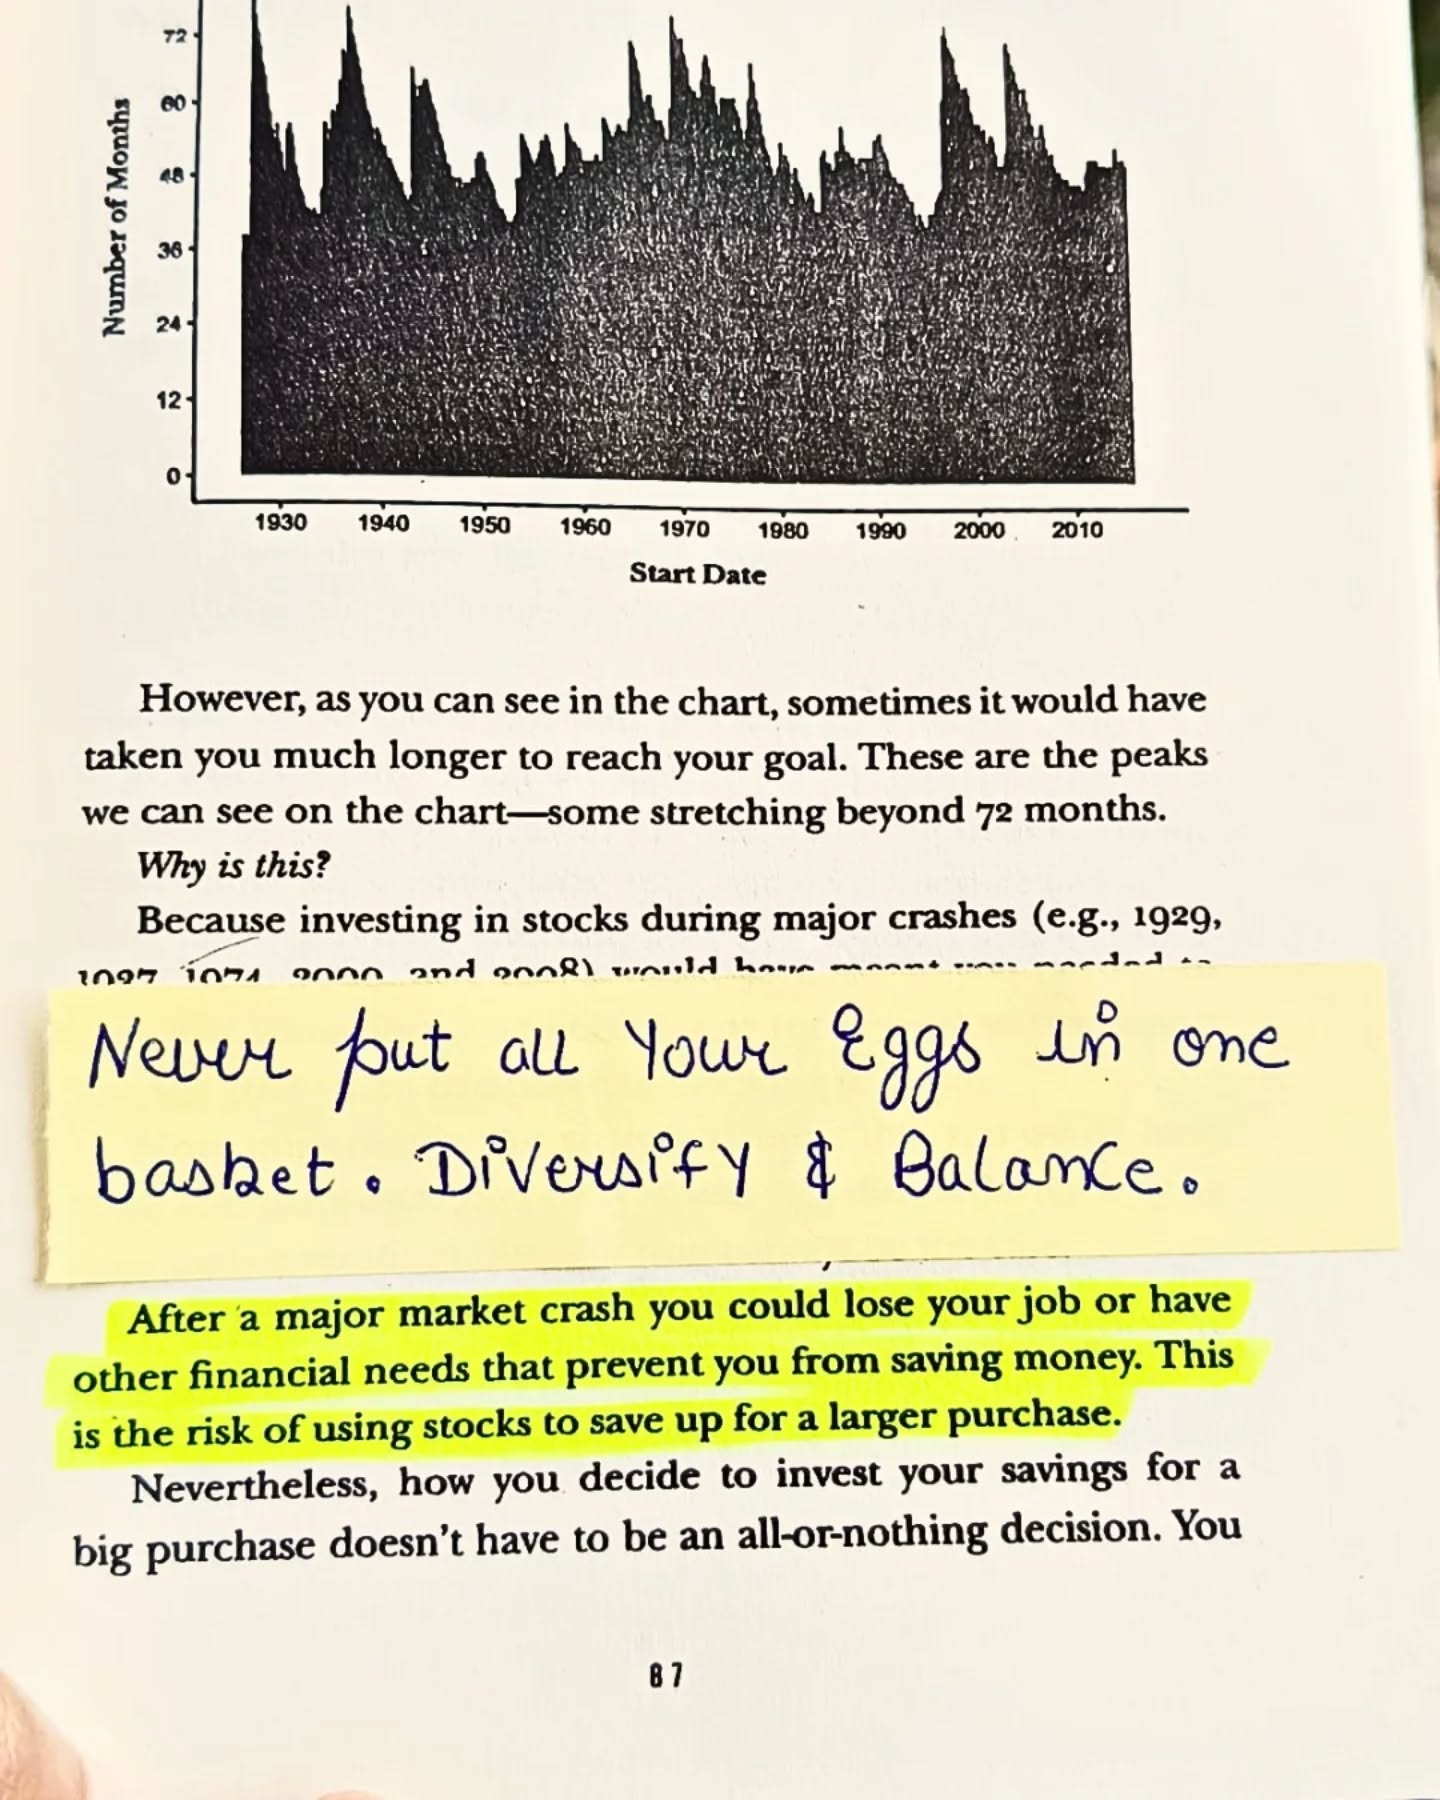 72
60
48
36
24
12
0
Number of Months
1930 1940 1950 1960 1970 1980 1990 2000 2010
Start Date
However, as you can see in the chart, sometimes it would have
taken you much longer to reach your goal. These are the peaks
we can see on the chart—some stretching beyond 72 months.
Why is this?
Because investing in stocks during major crashes (e.g., 1929,
1937, 1974, 2000, and 2008) would have meant you needed to
Never put all Your Eggs in one
basket. Diversify & Balance.
After a major market crash you could lose your job or have
other financial needs that prevent you from saving money. This
is the risk of using stocks to save up for a larger purchase.
Nevertheless, how you decide to invest your savings for a
big purchase doesn't have to be an all-or-nothing decision. You
87